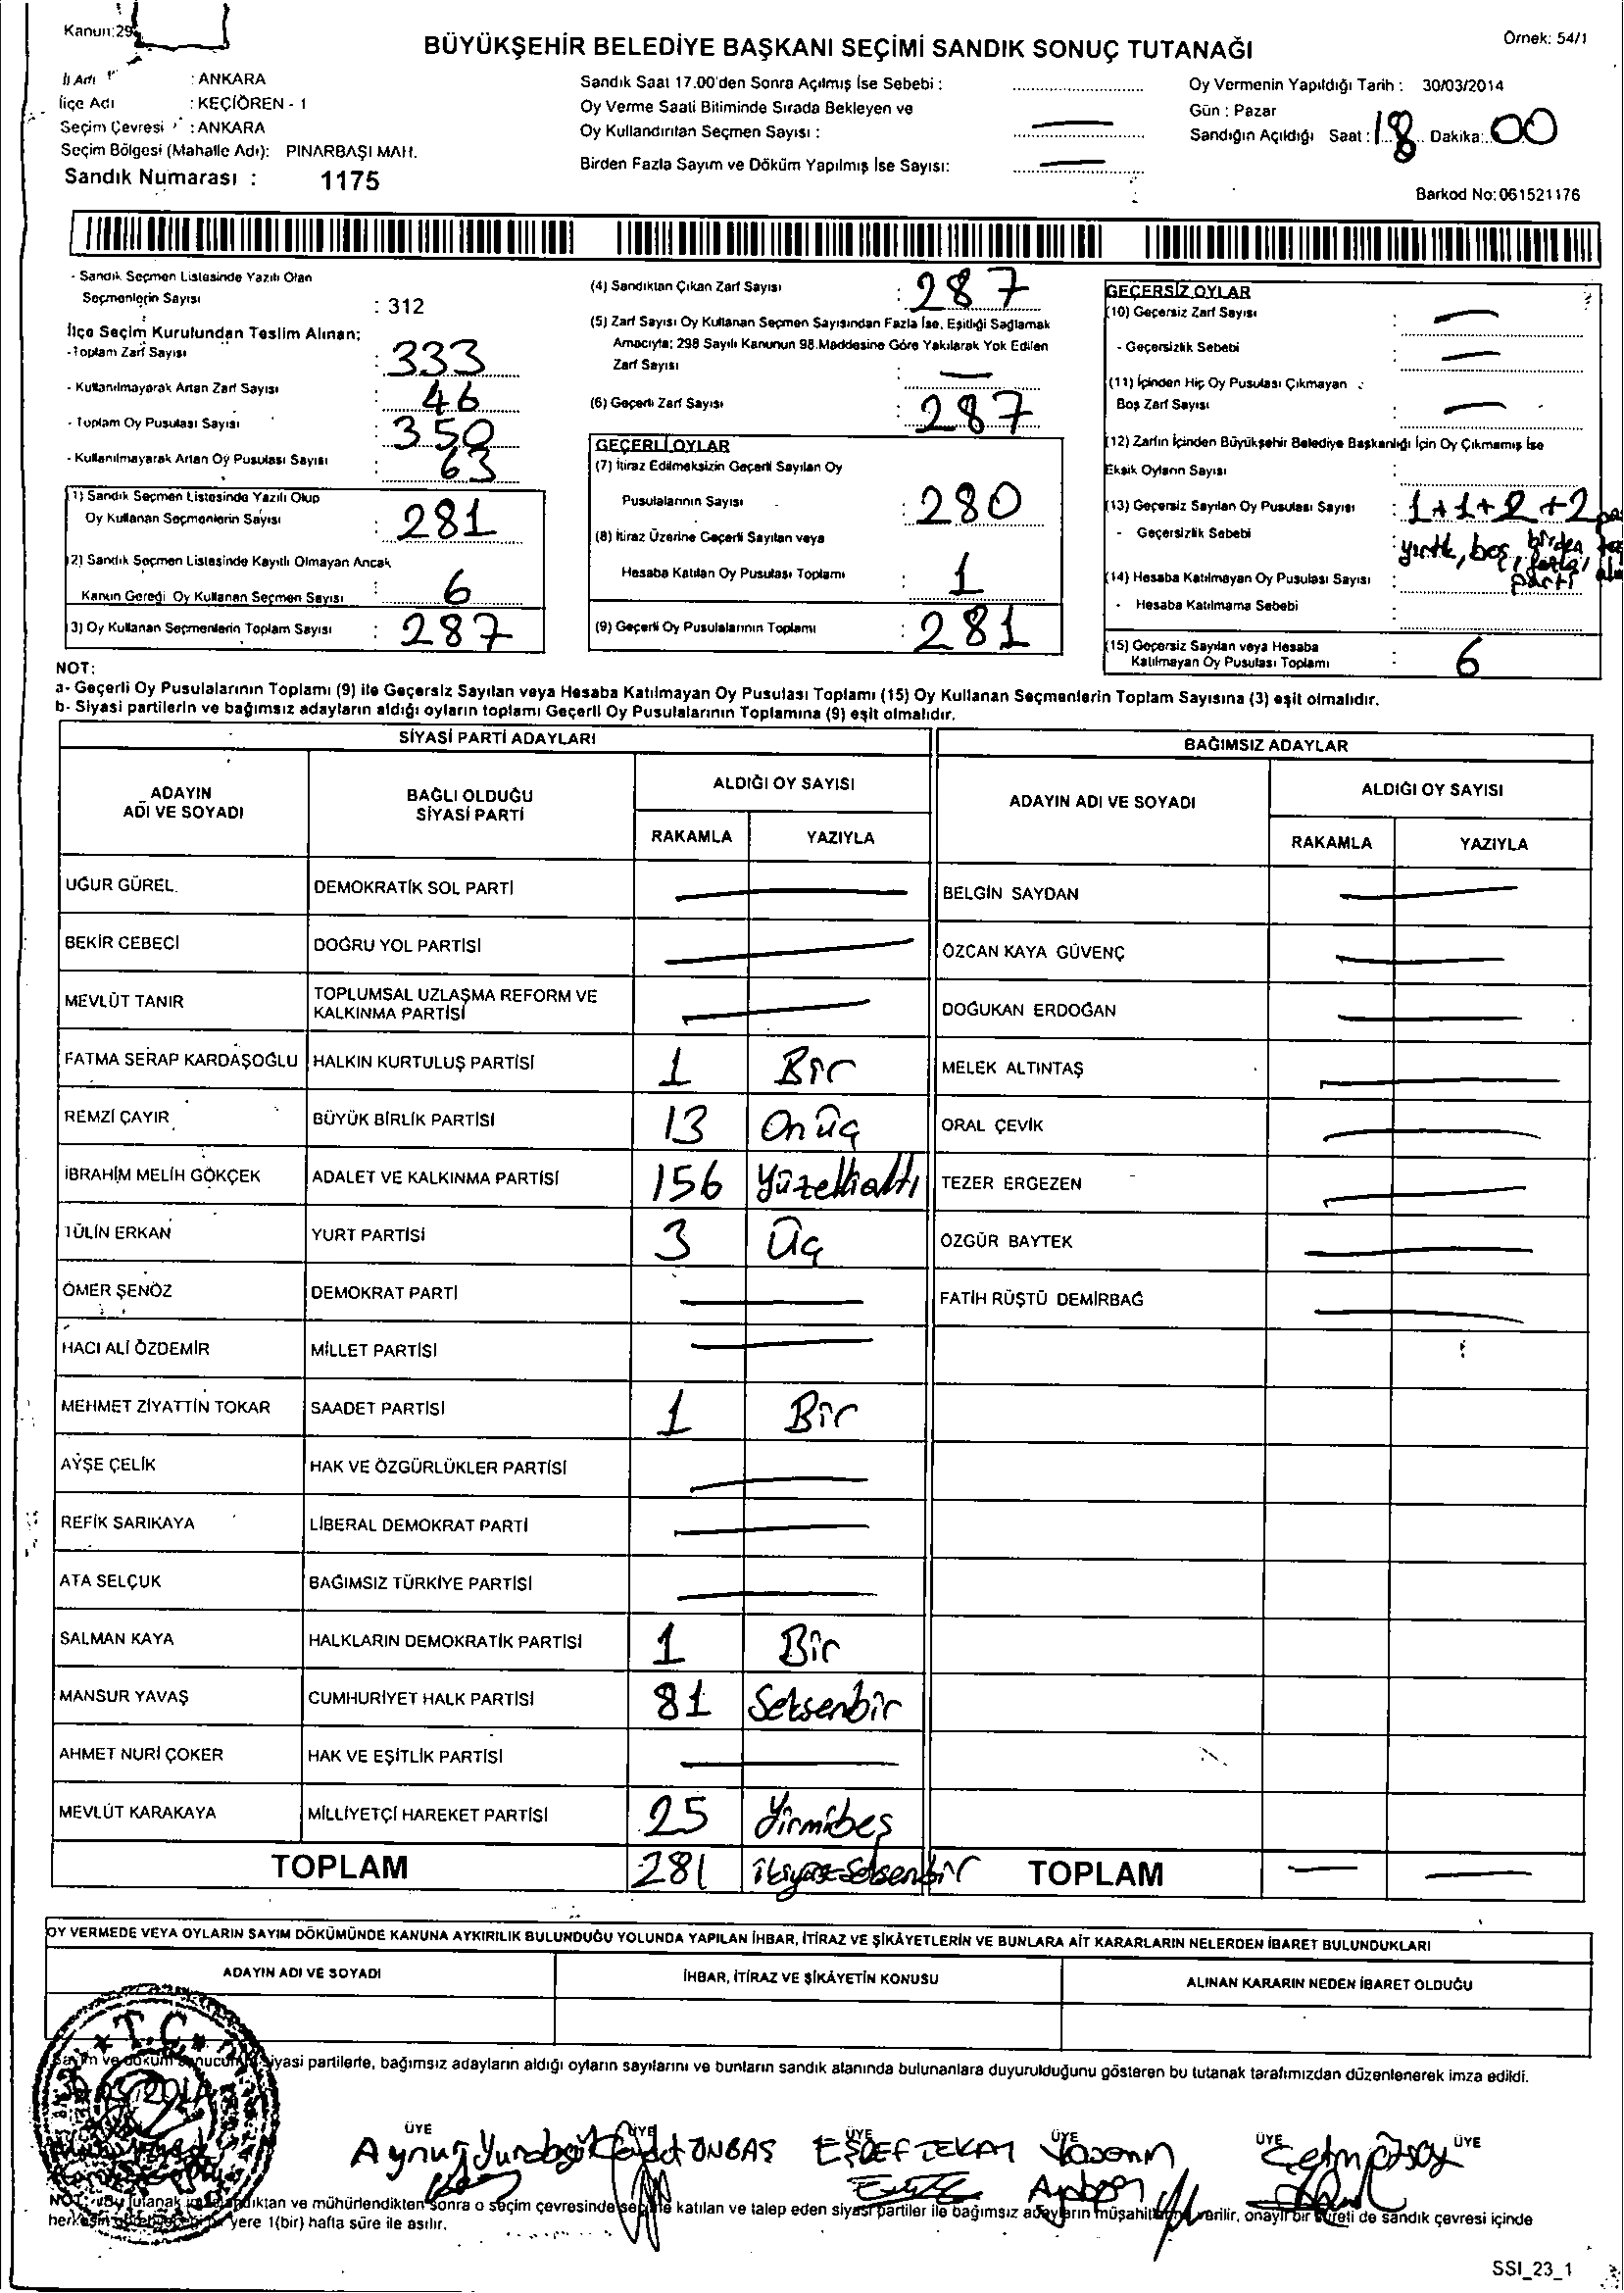 Kanun:29
BÜYÜKŞEHİR BELEDİYE BAŞKANI SEÇİMİ SANDIK SONUÇ TUTANAĞI
Örnek: 54/1
İl Adı : ANKARA
İlçe Adı : KEÇİÖREN - 1
Seçim Çevresi : ANKARA
Seçim Bölgesi (Mahalle Adı): PINARBAŞI MAH.
Sandık Numarası : 1175
Sandık Saat 17.00'den Sonra Açılmış İse Sebebi :
Oy Verme Saati Bitiminde Sırada Bekleyen ve
Oy Kullandırılan Seçmen Sayısı : —
Birden Fazla Sayım ve Döküm Yapılmış İse Sayısı: —
Oy Vermenin Yapıldığı Tarih : 30/03/2014
Gün : Pazar
Sandığın Açıldığı Saat : 18 Dakika: 00
Barkod No: 061521176
- Sandık Seçmen Listesinde Yazılı Olan
Seçmenlerin Sayısı : 312
İlçe Seçim Kurulundan Teslim Alınan:
-Toplam Zarf Sayısı : 333
- Kullanılmayarak Artan Zarf Sayısı : 46
- Toplam Oy Pusulası Sayısı : 350
- Kullanılmayarak Artan Oy Pusulası Sayısı : 63
(1) Sandık Seçmen Listesinde Yazılı Olup
Oy Kullanan Seçmenlerin Sayısı : 281
(2) Sandık Seçmen Listesinde Kayıtlı Olmayan Ancak
Kanun Gereği Oy Kullanan Seçmen Sayısı : 6
(3) Oy Kullanan Seçmenlerin Toplam Sayısı : 287
(4) Sandıktan Çıkan Zarf Sayısı : 287
(5) Zarf Sayısı Oy Kullanan Seçmen Sayısından Fazla İse, Eşitliği Sağlamak
Amacıyla; 298 Sayılı Kanunun 98.Maddesine Göre Yakılarak Yok Edilen
Zarf Sayısı : —
(6) Geçerli Zarf Sayısı : 287
GEÇERLİ OYLAR
(7) İtiraz Edilmeksizin Geçerli Sayılan Oy
Pusulalarının Sayısı : 280
(8) İtiraz Üzerine Geçerli Sayılan veya
Hesaba Katılan Oy Pusulası Toplamı : 1
(9) Geçerli Oy Pusulalarının Toplamı : 281
GEÇERSİZ OYLAR
(10) Geçersiz Zarf Sayısı : —
- Geçersizlik Sebebi : —
(11) İçinden Hiç Oy Pusulası Çıkmayan
Boş Zarf Sayısı : —
(12) Zarfın İçinden Büyükşehir Belediye Başkanlığı İçin Oy Çıkmamış İse
Eksik Oyların Sayısı :
(13) Geçersiz Sayılan Oy Pusulası Sayısı : 1+1+2+2
- Geçersizlik Sebebi : yırtık, boş, birden fazla parti
(14) Hesaba Katılmayan Oy Pusulası Sayısı :
- Hesaba Katılmama Sebebi :
(15) Geçersiz Sayılan veya Hesaba
Katılmayan Oy Pusulası Toplamı : 6
NOT:
a- Geçerli Oy Pusulalarının Toplamı (9) ile Geçersiz Sayılan veya Hesaba Katılmayan Oy Pusulası Toplamı (15) Oy Kullanan Seçmenlerin Toplam Sayısına (3) eşit olmalıdır.
b- Siyasi partilerin ve bağımsız adayların aldığı oyların toplamı Geçerli Oy Pusulalarının Toplamına (9) eşit olmalıdır.
SİYASİ PARTİ ADAYLARI
ADAYIN ADI VE SOYADI
BAĞLI OLDUĞU SİYASİ PARTİ
ALDIĞI OY SAYISI
RAKAMLA YAZIYLA
UĞUR GÜREL DEMOKRATİK SOL PARTİ —
BEKİR CEBECİ DOĞRU YOL PARTİSİ —
MEVLÜT TANIR TOPLUMSAL UZLAŞMA REFORM VE KALKINMA PARTİSİ —
FATMA SERAP KARDAŞOĞLU HALKIN KURTULUŞ PARTİSİ 1 Bir
REMZİ ÇAYIR BÜYÜK BİRLİK PARTİSİ 13 Onüç
İBRAHİM MELİH GÖKÇEK ADALET VE KALKINMA PARTİSİ 156 Yüzellialtı
TÜLİN ERKAN YURT PARTİSİ 3 Üç
ÖMER ŞENÖZ DEMOKRAT PARTİ —
HACI ALİ ÖZDEMİR MİLLET PARTİSİ —
MEHMET ZİYATTİN TOKAR SAADET PARTİSİ 1 Bir
AYŞE ÇELİK HAK VE ÖZGÜRLÜKLER PARTİSİ —
REFİK SARIKAYA LİBERAL DEMOKRAT PARTİ —
ATA SELÇUK BAĞIMSIZ TÜRKİYE PARTİSİ —
SALMAN KAYA HALKLARIN DEMOKRATİK PARTİSİ 1 Bir
MANSUR YAVAŞ CUMHURİYET HALK PARTİSİ 81 Seksenbir
AHMET NURİ ÇOKER HAK VE EŞİTLİK PARTİSİ —
MEVLÜT KARAKAYA MİLLİYETÇİ HAREKET PARTİSİ 25 Yirmibeş
TOPLAM 281 ikiyüzseksenbir
BAĞIMSIZ ADAYLAR
ADAYIN ADI VE SOYADI
ALDIĞI OY SAYISI
RAKAMLA YAZIYLA
BELGİN SAYDAN —
ÖZCAN KAYA GÜVENÇ —
DOĞUKAN ERDOĞAN —
MELEK ALTINTAŞ —
ORAL ÇEVİK —
TEZER ERGEZEN —
ÖZGÜR BAYTEK —
FATİH RÜŞTÜ DEMİRBAĞ —
TOPLAM — —
OY VERMEDE VEYA OYLARIN SAYIM DÖKÜMÜNDE KANUNA AYKIRILIK BULUNDUĞU YOLUNDA YAPILAN İHBAR, İTİRAZ VE ŞİKÂYETLERİN VE BUNLARA AİT KARARLARIN NELERDEN İBARET BULUNDUKLARI
ADAYIN ADI VE SOYADI
İHBAR, İTİRAZ VE ŞİKÂYETİN KONUSU
ALINAN KARARIN NEDEN İBARET OLDUĞU
T.C.
Sayım ve döküm sonucunda siyasi partilerle, bağımsız adayların aldığı oyların sayılarını ve bunların sandık alanında bulunanlara duyurulduğunu gösteren bu tutanak tarafımızdan düzenlenerek imza edildi.
ÜYE ÜYE ÜYE ÜYE ÜYE ÜYE
Aynur ONBAŞ EŞREF TEKAT Yasemin Çetin Özsoy
NOT: Bu tutanak sandıktan ve mühürlendikten sonra o seçim çevresinde seçime katılan ve talep eden siyasi partiler ile bağımsız adayların müşahitlerine verilir, onaylı bir sureti de sandık çevresi içinde
yere 1(bir) hafta süre ile asılır.
SSI_23_1